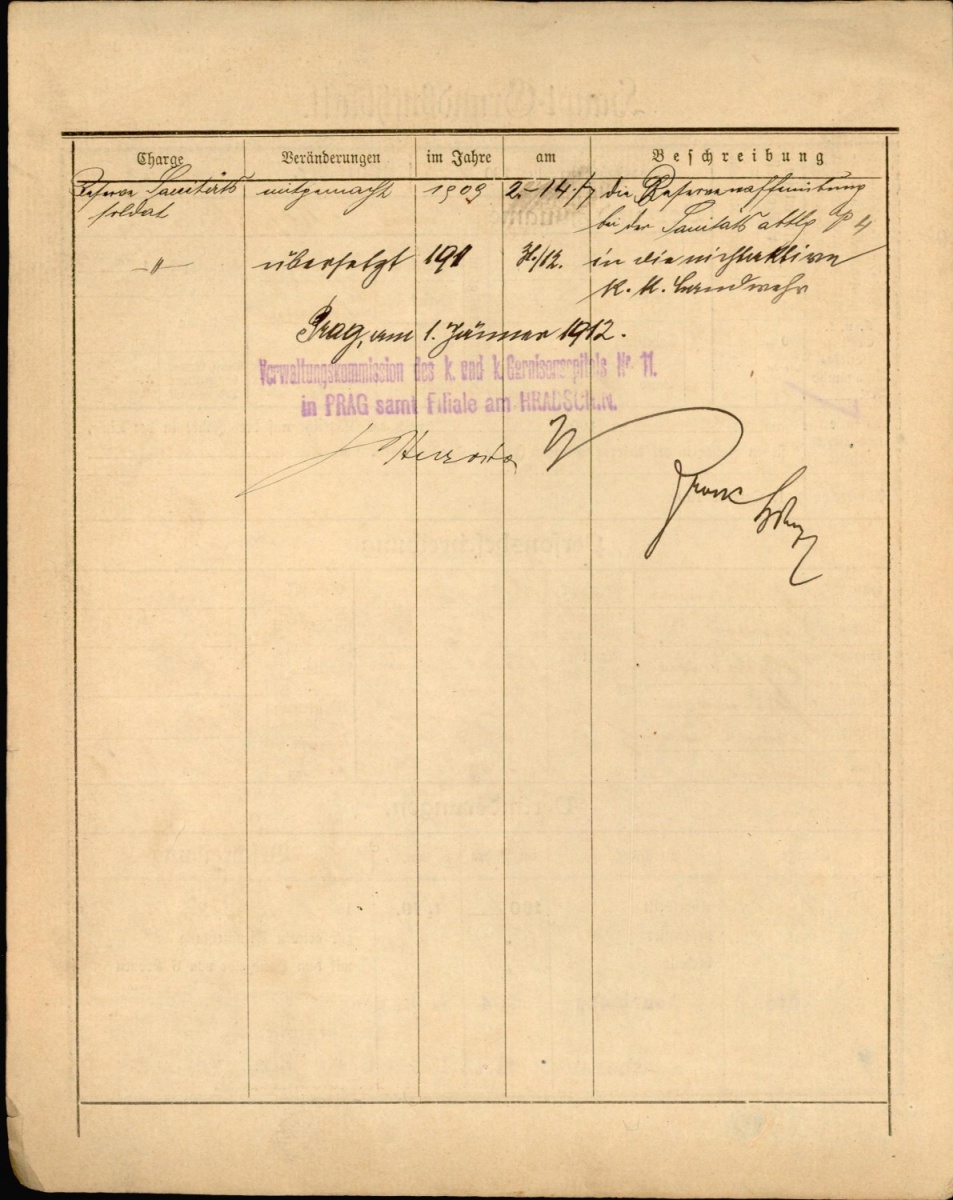 Charge Veränderungen im Jahre am Beschreibung
Reserve Sanitäts mitgemacht 1909 2.–14./7 die Reservewaffenübung
soldat bei der Sanitäts abtlg 4
–〃– übersetzt 191 31./12. in die nichtaktive
K. K. Landwehr
Prag, am 1. Jänner 1912.
Verwaltungskommission des k. und k. Garnisonsspitals Nr. 11.
in PRAG samt Filiale am HRADSCHIN.